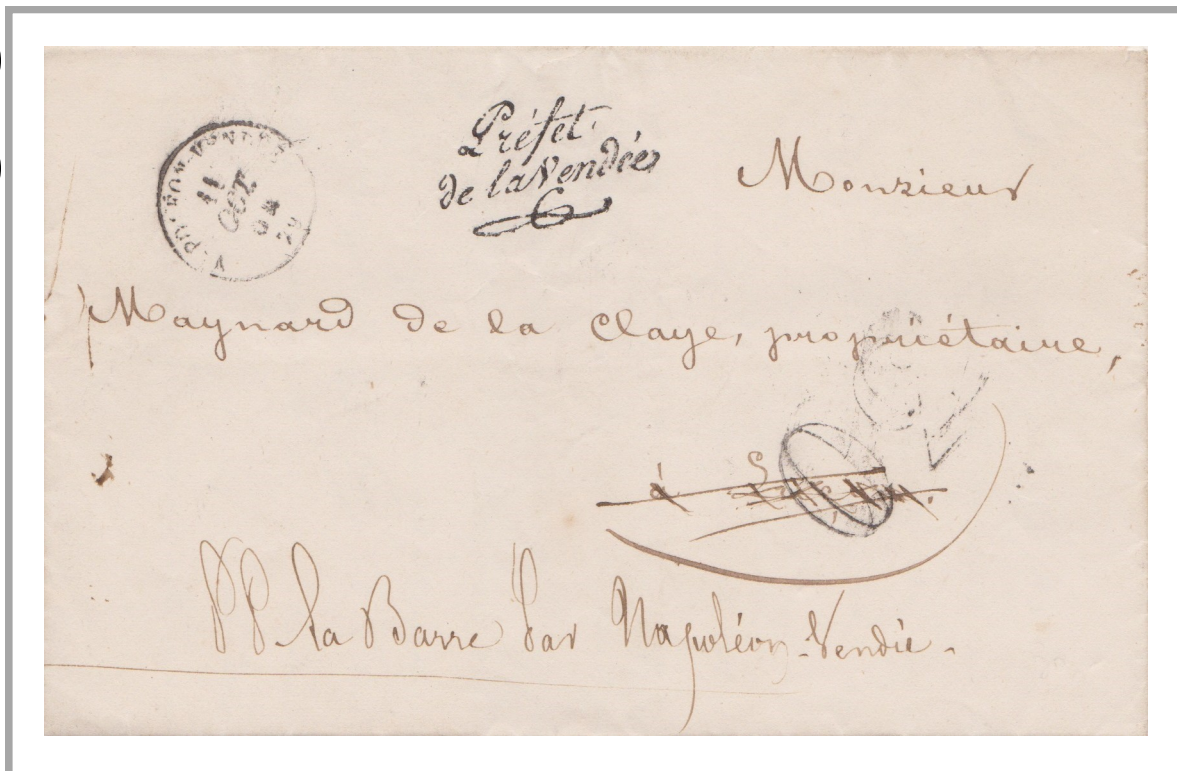 NAPOLEON-VENDEE
11
OCT.
Préfet
de la Vendée
Monsieur
Maynard de la Claye, propriétaire,
à
PP. La Barre par Napoléon-Vendée.